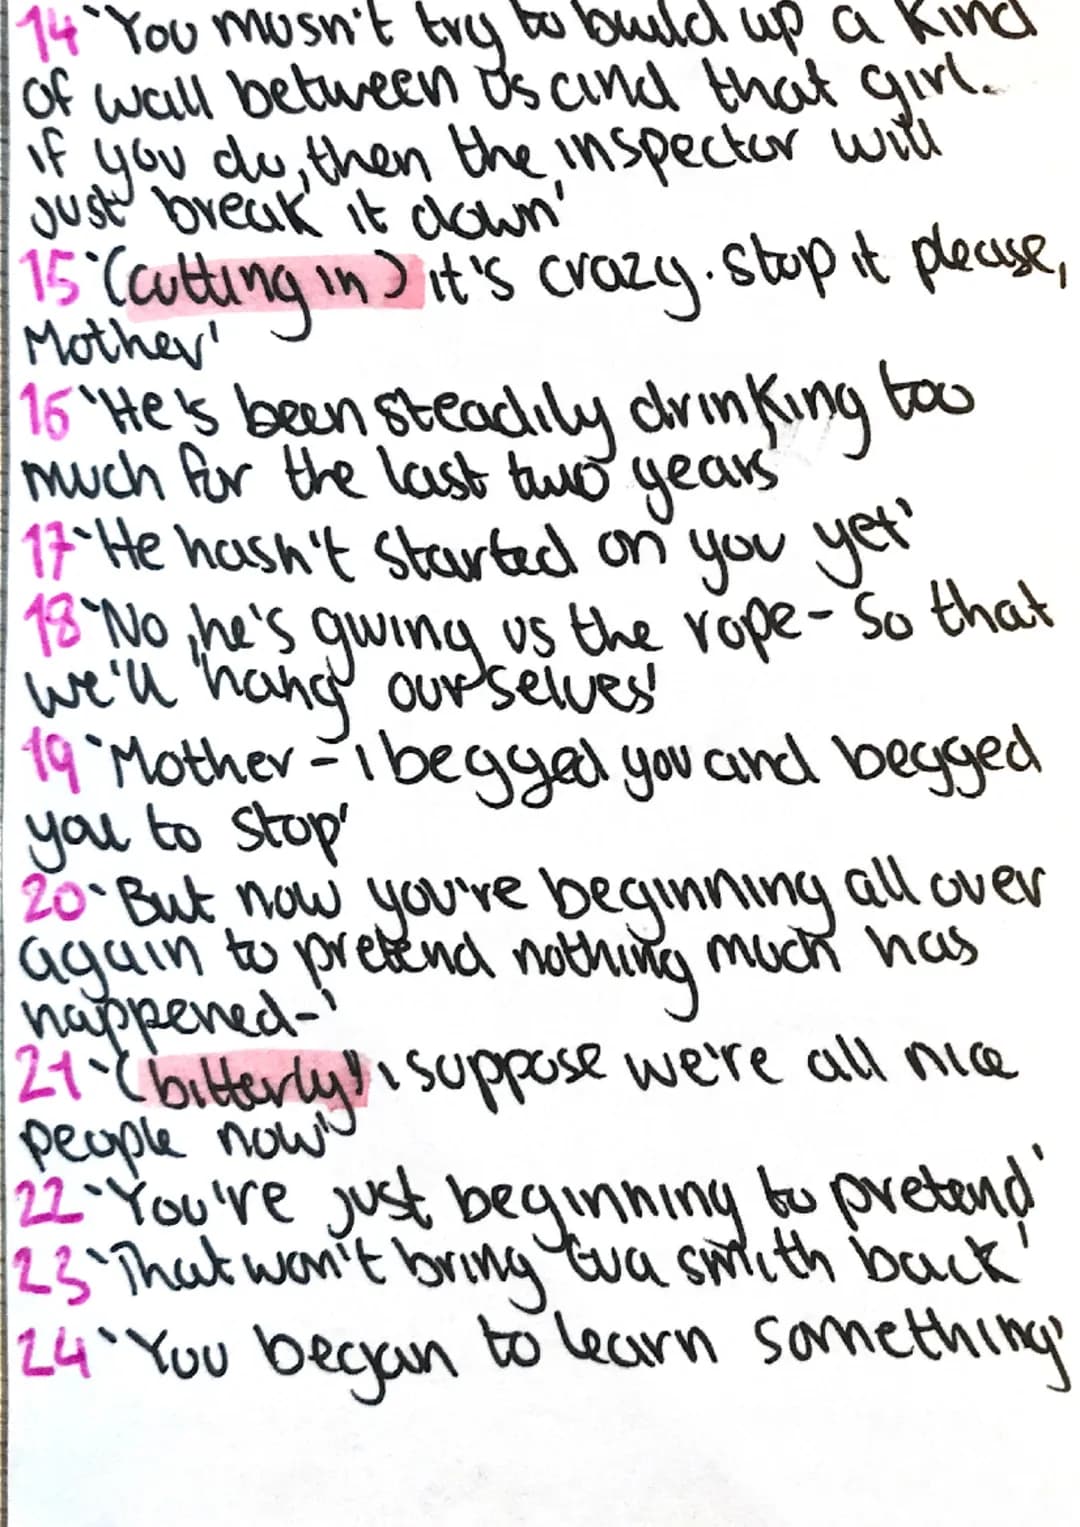 14 'You musn't try to build up a kind
of wall between us and that girl.
if you do, then the inspector will
just break it down'
15 '(cutting in) it's crazy. stop it please,
Mother'
16 'He's been steadily drinking too
much for the last two years
17 'He hasn't started on you yet'
18 'No, he's giving us the rope - so that
we'll hang ourselves'
19 'Mother - I begged you and begged
you to stop'
20 'But now you're beginning all over
again to pretend nothing much has
happened-'
21 '(bitterly) i suppose we're all nice
people now'
22 'You're just beginning to pretend'
23 'That won't bring Eva smith back'
24 'You began to learn something'